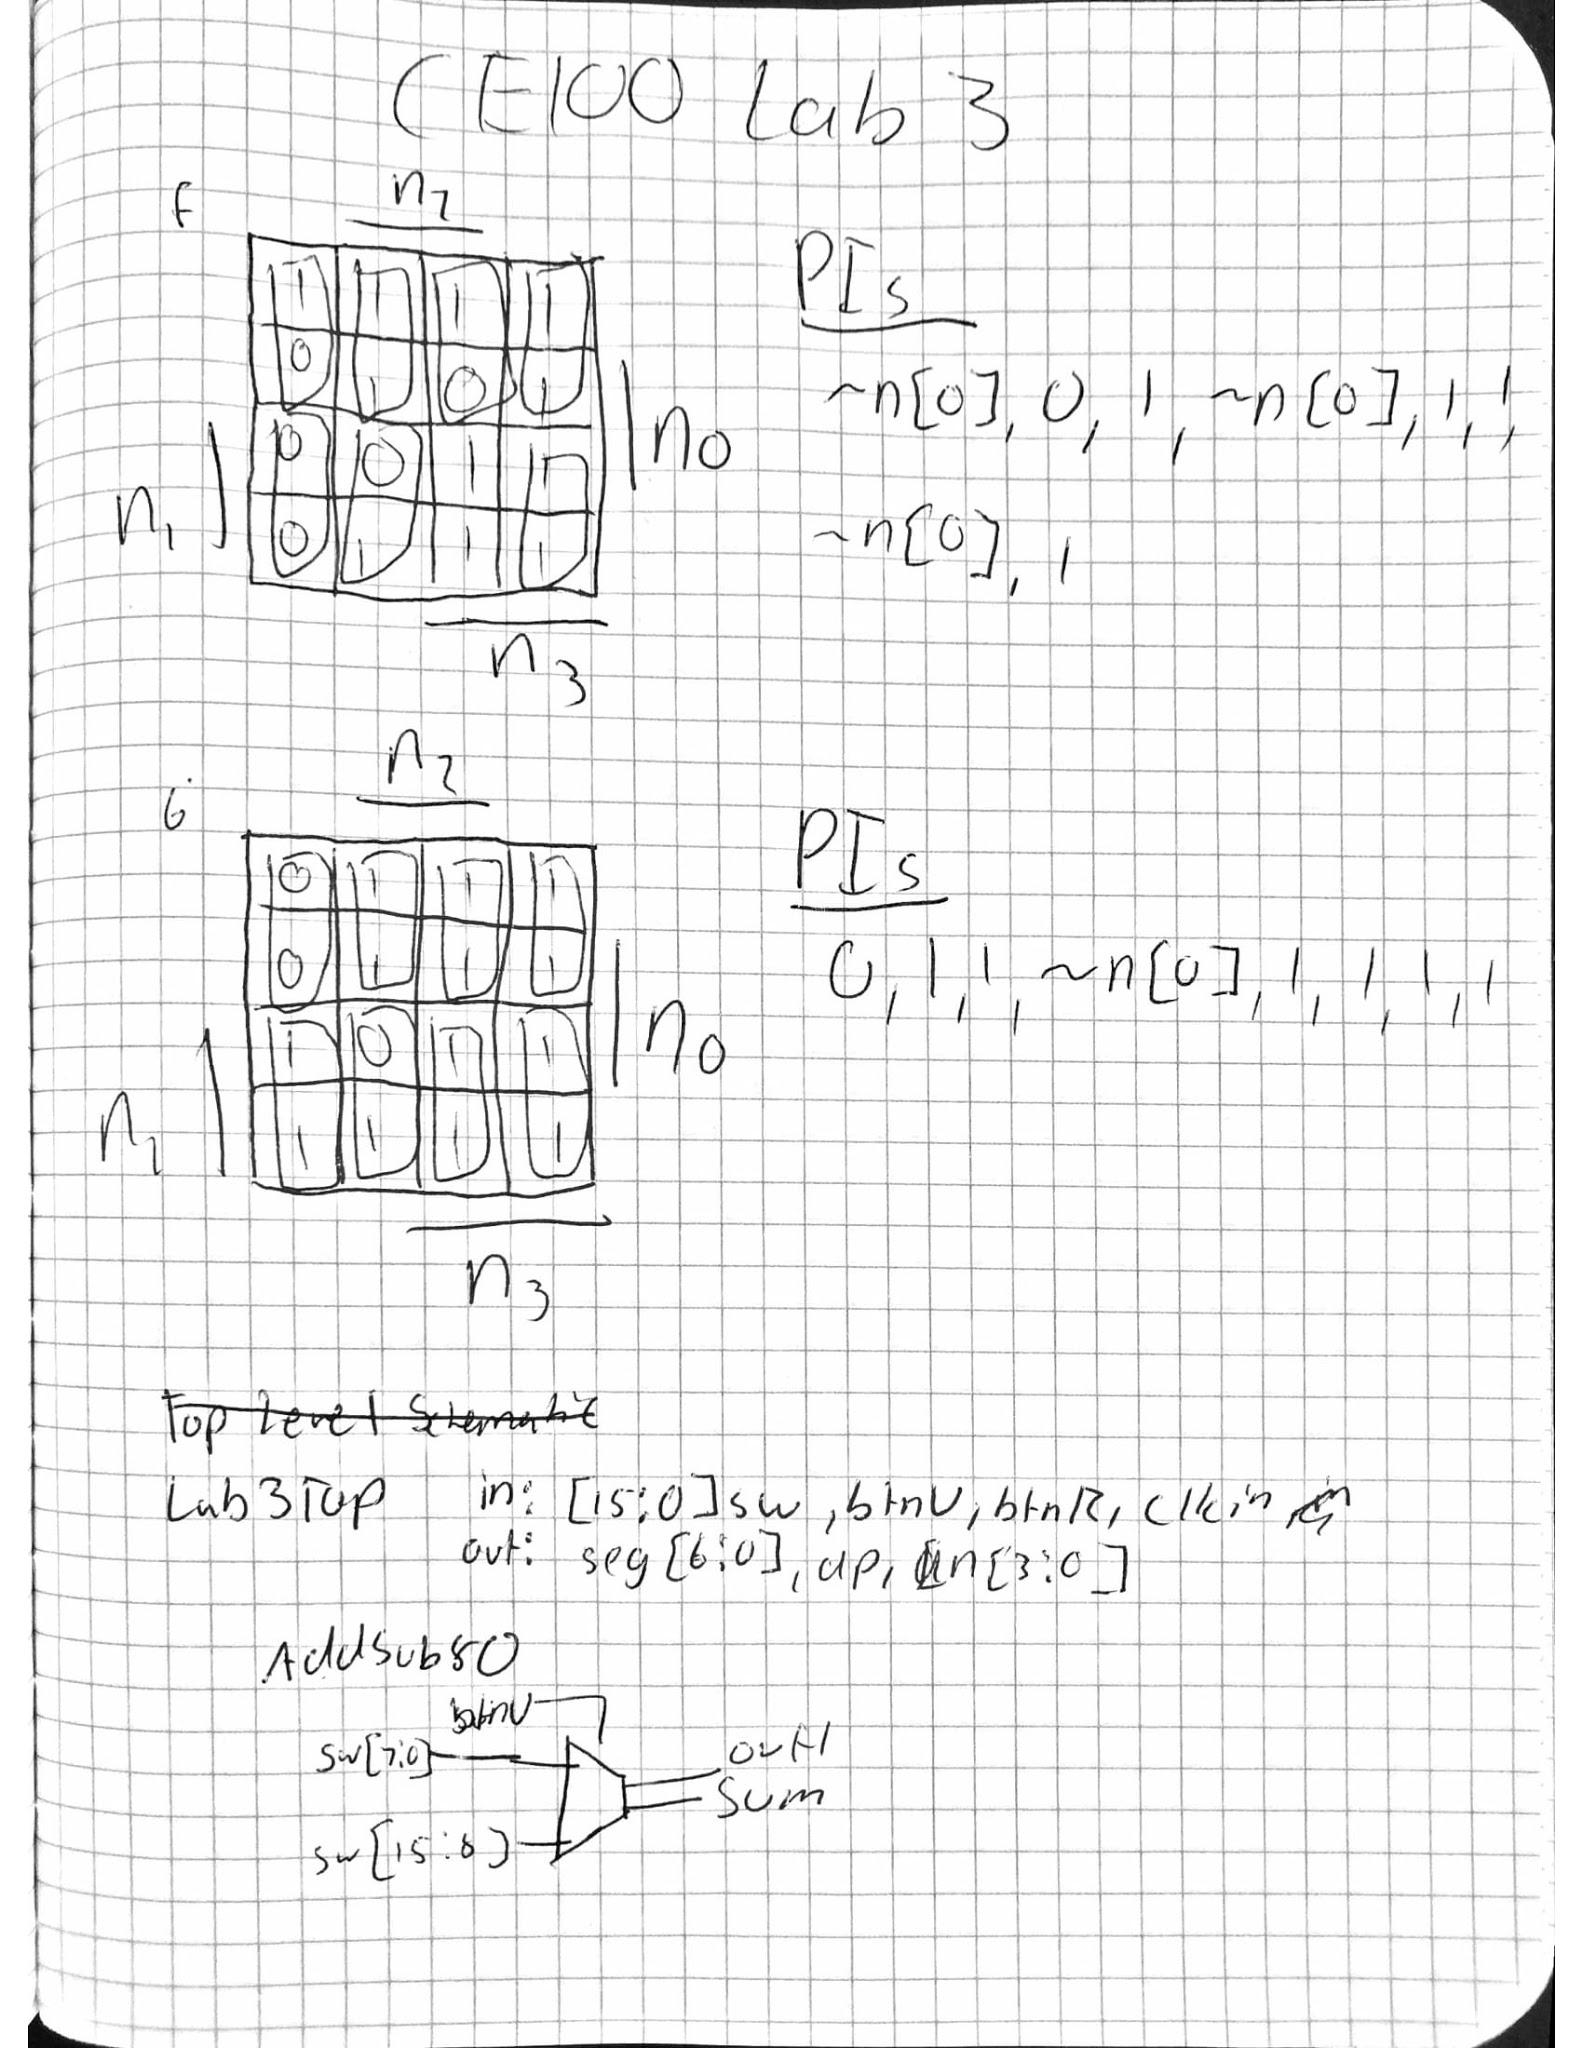 CE100 Lab 3
F
n2
1 1 1 1
0 1 0 1
0 0 1 1
0 1 1 1
n1
n0
n3
PIs
~n[0], 0, 1, ~n[0], 1, 1,
~n[0], 1
G
n2
0 1 1 1
0 1 1 1
1 0 1 1
1 1 1 1
n1
n0
n3
PIs
0, 1, 1, ~n[0], 1, 1, 1, 1
Top Level Schematic
Lab3Top in: [15:0]sw, btnU, btnR, clkin
out: seg[6:0], dp, an[3:0]
AddSub8
btnU
sw[7:0]
sw[15:8]
ovfl
sum